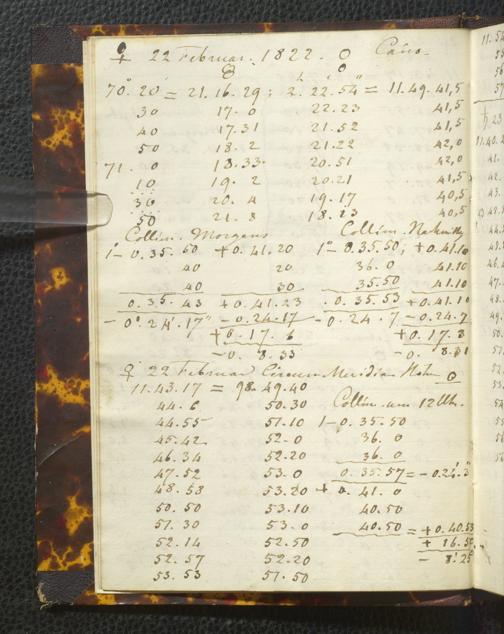 ♀ 22 Februar. 1822. ☉ Cairo.
70°.20 = 21.16.29; 2.22.54 = 11.49.41,5
30 17.0 22.23 41,5
40 17.31 21.52 41,5
50 18.2 21.22 42,0
71.0 18.33 20.51 42,0
10 19.2 20.21 41,5
30 20.4 19.17 40,5
50 21.8 18.23 40,5
Collim. Morgens Collim. Nachmittg
1- 0.35.50 +0.41.20 1- 0.35.50; +0.41.10
40 20 36.0 41.10
40 30 35.50 41.10
0.35.43 +0.41.23 0.35.53 +0.41.10
- 0°.24'.17" - 0.24.17 - 0.24.7 - 0.24.7
+0.17.6 +0.17.3
- 0. 8.33 - 0. 8.31
♀ 22 Februar Circum Meridian Höhn ☉
11.43.17 = 98.49.40
44.6 50.30 Collim um 12 Uhr.
44.55 51.10 1- 0.35.50
45.42 52.0 36.0
46.34 52.20 36.0
47.52 53.0 0.35.57 = - 0.24.3
48.58 53.20 + 0.41.0
50.50 53.10 40.50
51.30 53.0 40.50 = + 0.40.53
52.14 52.50 + 16.50
52.57 52.20 - 8'.25
53.53 51.50